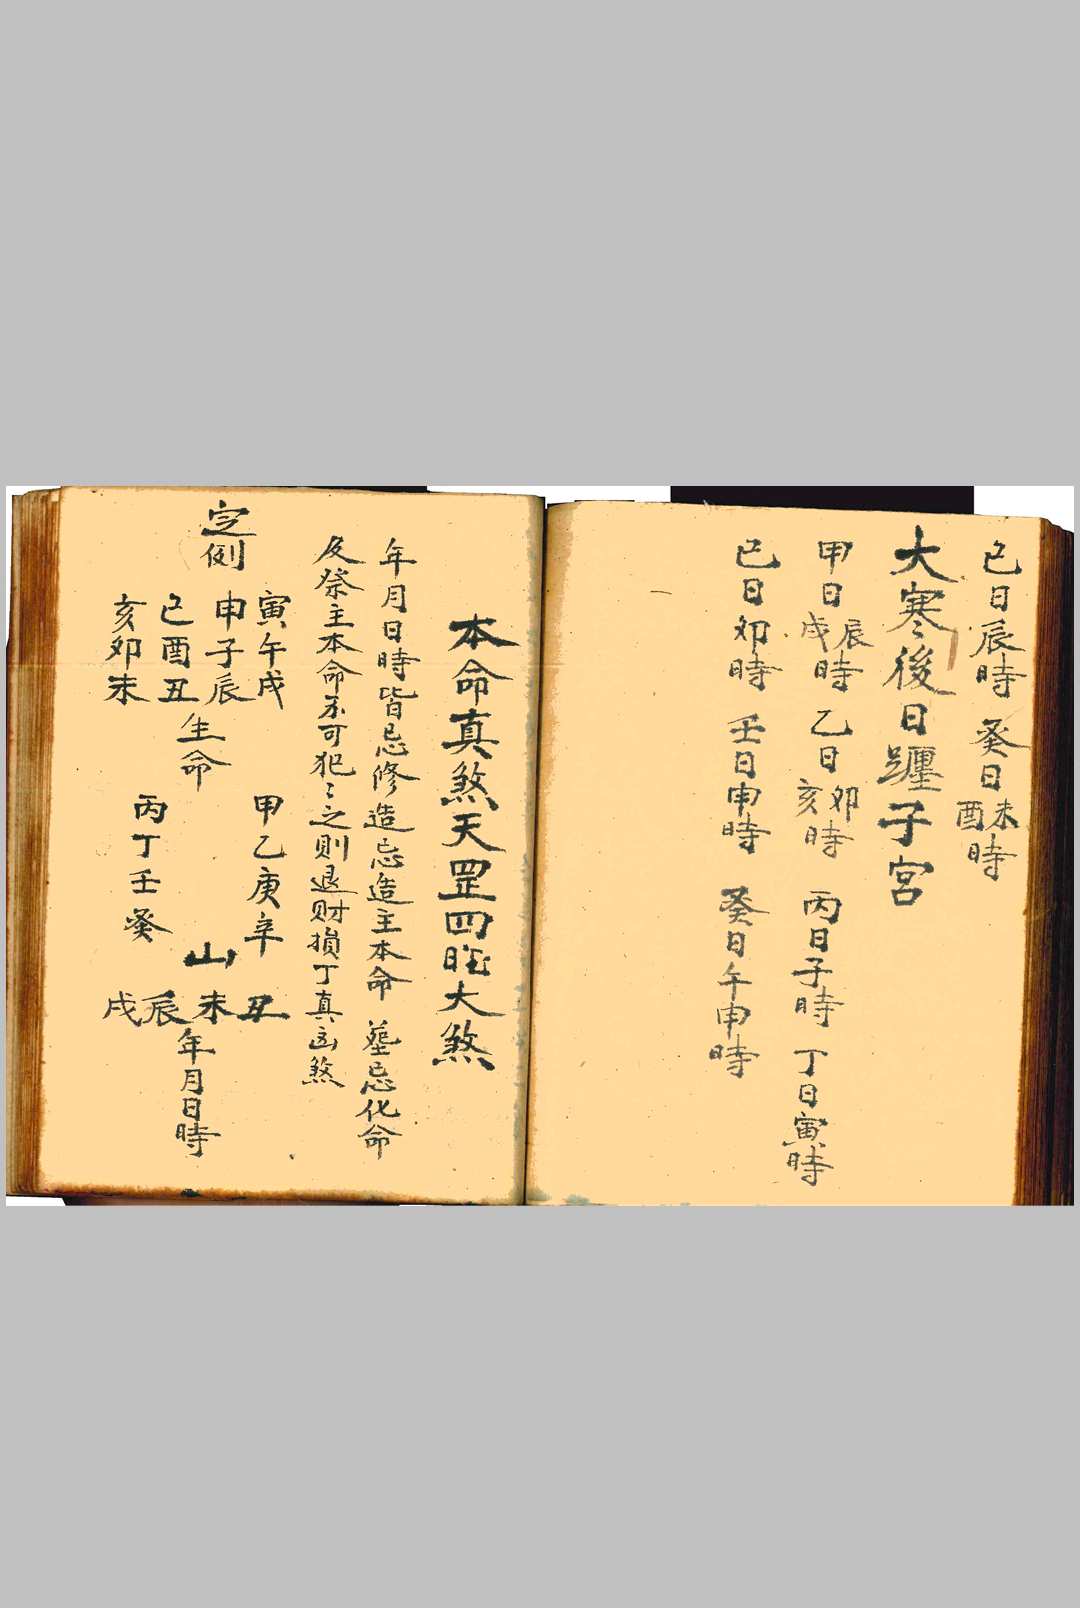 己日辰時 癸日未酉時
大寒後日躔子宮
甲日辰戌時 乙日卯亥時 丙日子時 丁日寅時
己日卯時 壬日申時 癸日午申時
本命真煞天罡四旺大煞
年月日時皆忌修造忌造主本命 塟忌化命
及祭主本命不可犯〻之則退財損丁真凶煞
定例
寅午戌
申子辰
巳酉丑
亥卯未
生命
甲乙庚辛
丙丁壬癸
山
丑未辰戌
年月日時